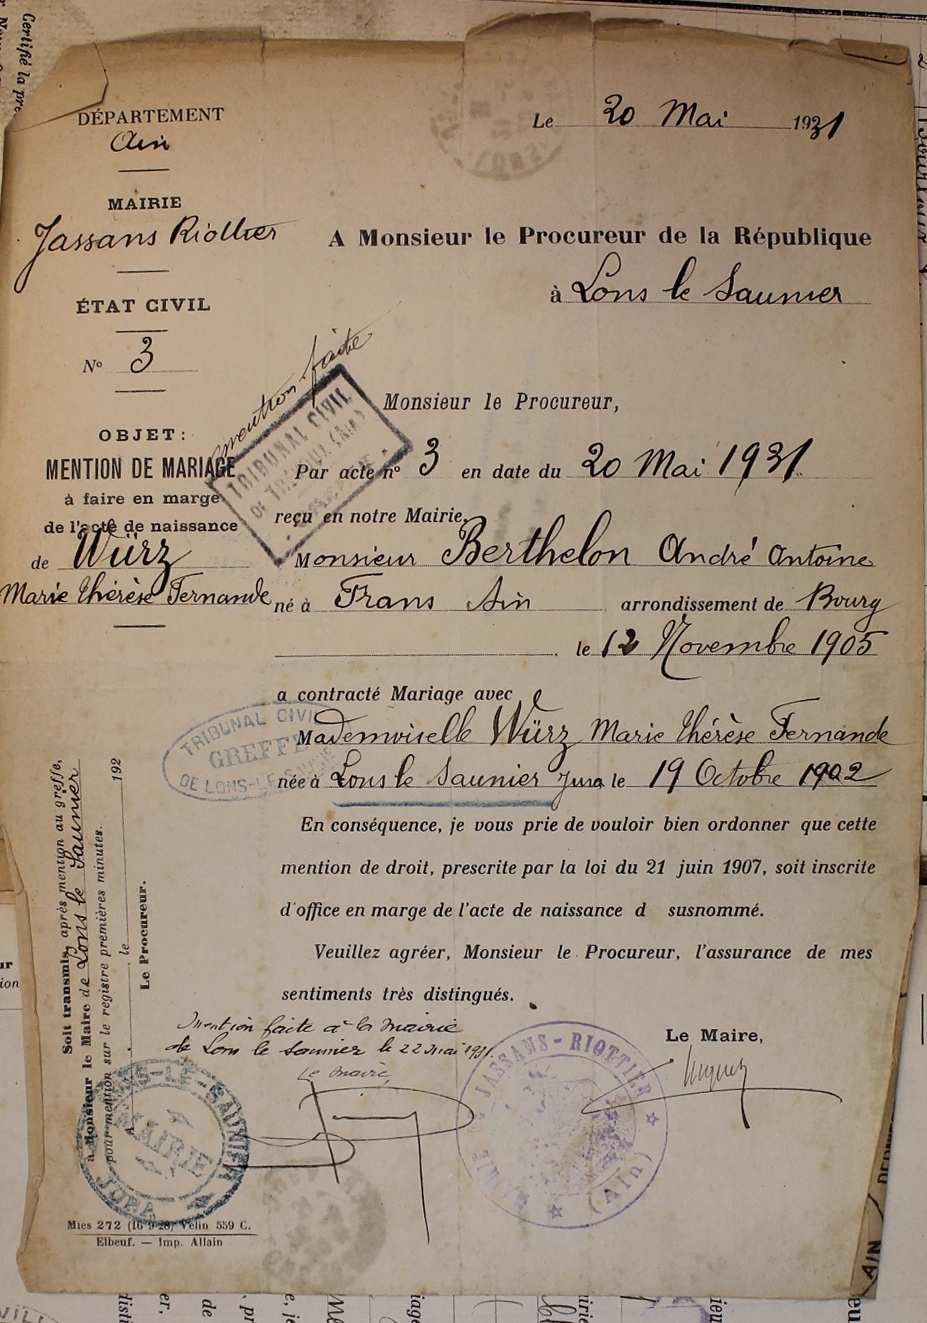 DÉPARTEMENT
Ain
MAIRIE
Jassans Riottier
ÉTAT CIVIL
No 3
OBJET :
MENTION DE MARIAGE
à faire en marge
de l'acte de naissance
de Würz
Marie Thérèse Fernande
Le 20 Mai 1931
A Monsieur le Procureur de la République
à Lons le Saunier
mention faite
TRIBUNAL CIVIL
DE
Monsieur le Procureur,
Par acte no 3 en date du 20 Mai 1931
reçu en notre Mairie,
Monsieur Berthelon André Antoine
né à Frans Ain arrondissement de Bourg
le 12 Novembre 1905
a contracté Mariage avec
Mademoiselle Würz Marie Thérèse Fernande
née à Lons le Saunier Jura le 19 Octobre 1902
TRIBUNAL CIVIL
GREFFE
DE LONS-LE-SAUNIER
En conséquence, je vous prie de vouloir bien ordonner que cette
mention de droit, prescrite par la loi du 21 juin 1907, soit inscrite
d'office en marge de l'acte de naissance d susnommé.
Veuillez agréer, Monsieur le Procureur, l'assurance de mes
sentiments très distingués.
Le Maire,
Mention faite à la mairie
de Lons le Saunier le 22 mai 1931
Le maire,
MAIRIE DE JASSANS-RIOTTIER
(Ain)
Soit transmis, après mention au greffe,
à Monsieur le Maire de Lons le Saunier
pour mention sur le registre premières minutes.
A , le 192
Le Procureur.
LONS-LE-SAUNIER
MAIRIE
JURA
Mies 272 (16-9-26) Vélin 559 C.
Elbeuf. — Imp. Allain
Certifié la